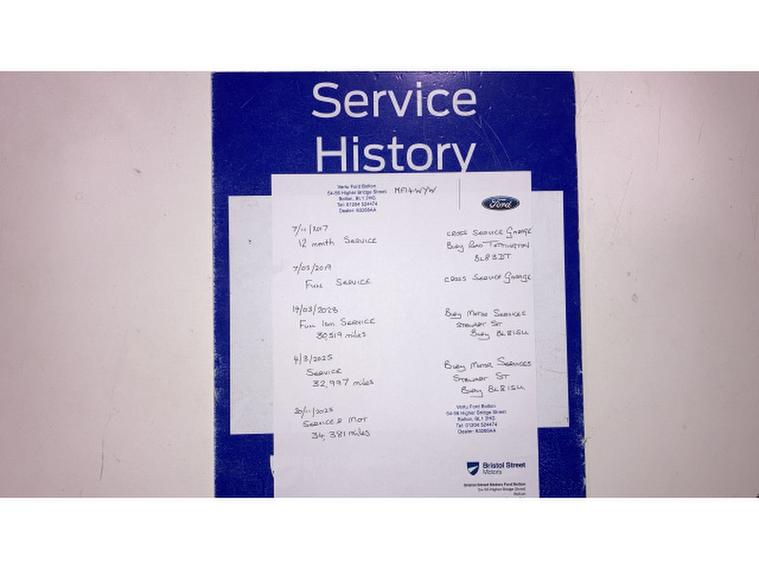 Service
History
Vertu Ford Bolton
54-56 Higher Bridge Street
Bolton, BL1 2HG
Tel: 01204 524474
Dealer: 63266AA
MF14WYW
Ford
7/11/2017
12 month SERVICE
CROSS SERVICE GARAGE
BURY ROAD TOTTINGTON
BL8 3DT
7/03/2019
FULL SERVICE
CROSS SERVICE GARAGE
14/03/2023
FULL 12m SERVICE
30,519 miles
BURY MOTOR SERVICES
STEWART ST
BURY BL8 1SU
4/3/2025
SERVICE
32,997 miles
BURY MOTOR SERVICES
STEWART ST
BURY BL8 1SU
20/11/2025
SERVICE & MOT
34,381 miles
Vertu Ford Bolton
54-56 Higher Bridge Street
Bolton, BL1 2HG
Tel: 01204 524474
Dealer: 63266AA
Bristol Street
Motors
Bristol Street Motors Ford Bolton
54-56 Higher Bridge Street
Bolton